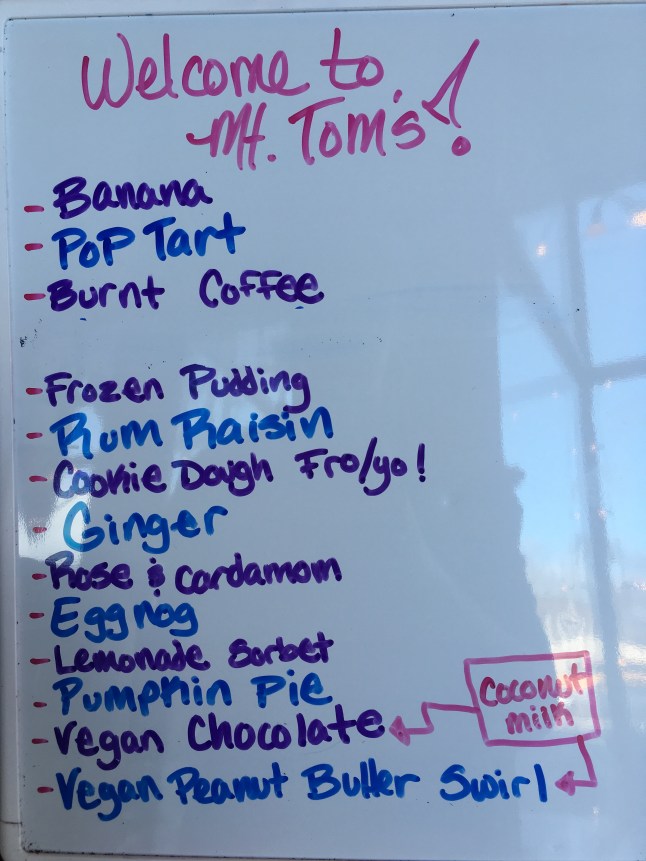 Welcome to
Mt. Tom's!
- Banana
- Pop Tart
- Burnt Coffee
- Frozen Pudding
- Rum Raisin
- Cookie Dough Fro/yo!
- Ginger
- Rose & Cardamom
- Eggnog
- Lemonade Sorbet
- Pumpkin Pie
- Vegan Chocolate
- Vegan Peanut Butter Swirl
Coconut
milk